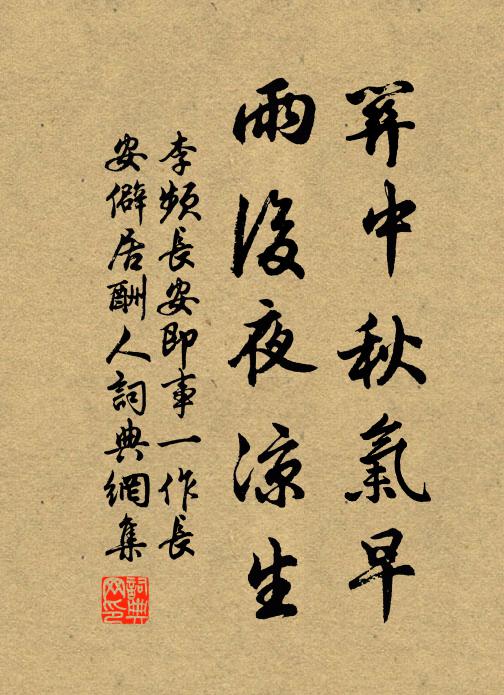 關中秋氣早
雨後夜涼生
李頻長安即事一作長
安僻居酬人詞典網集
詞典
网印